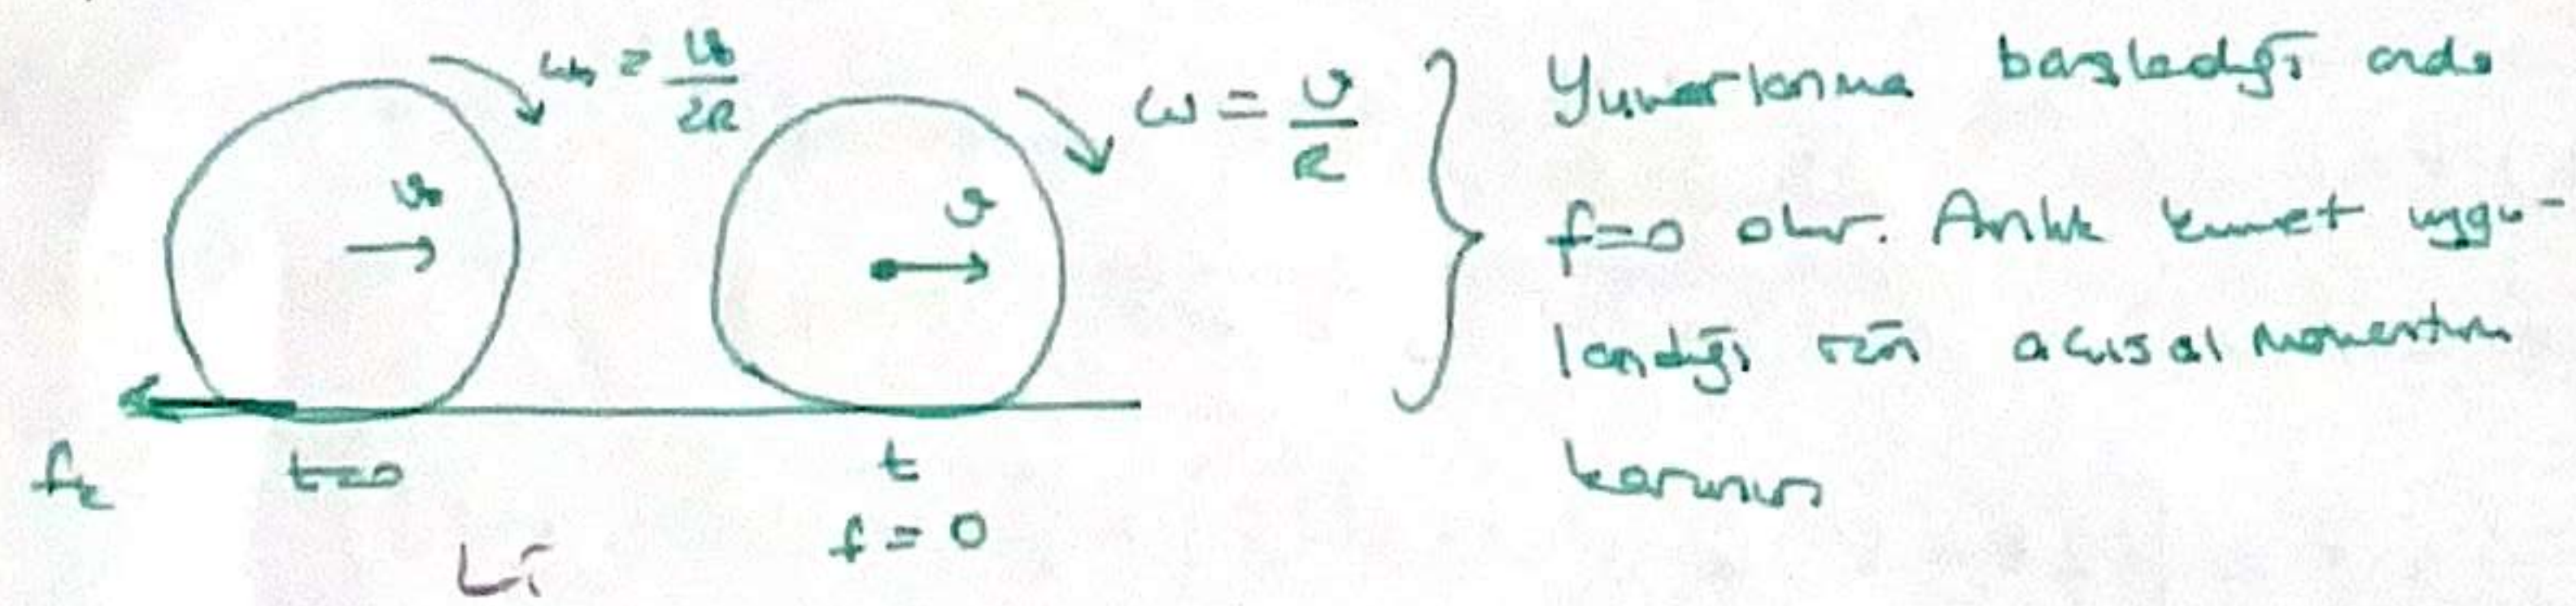 ω₀ = v₀/2R
ω = v/R
v₀
v
fₖ
t=0
t
f = 0
Li
Yuvarlanma başladığı anda
f=0 olur. Anlık kuvvet uygu-
landığı için açısal momentum
korunur